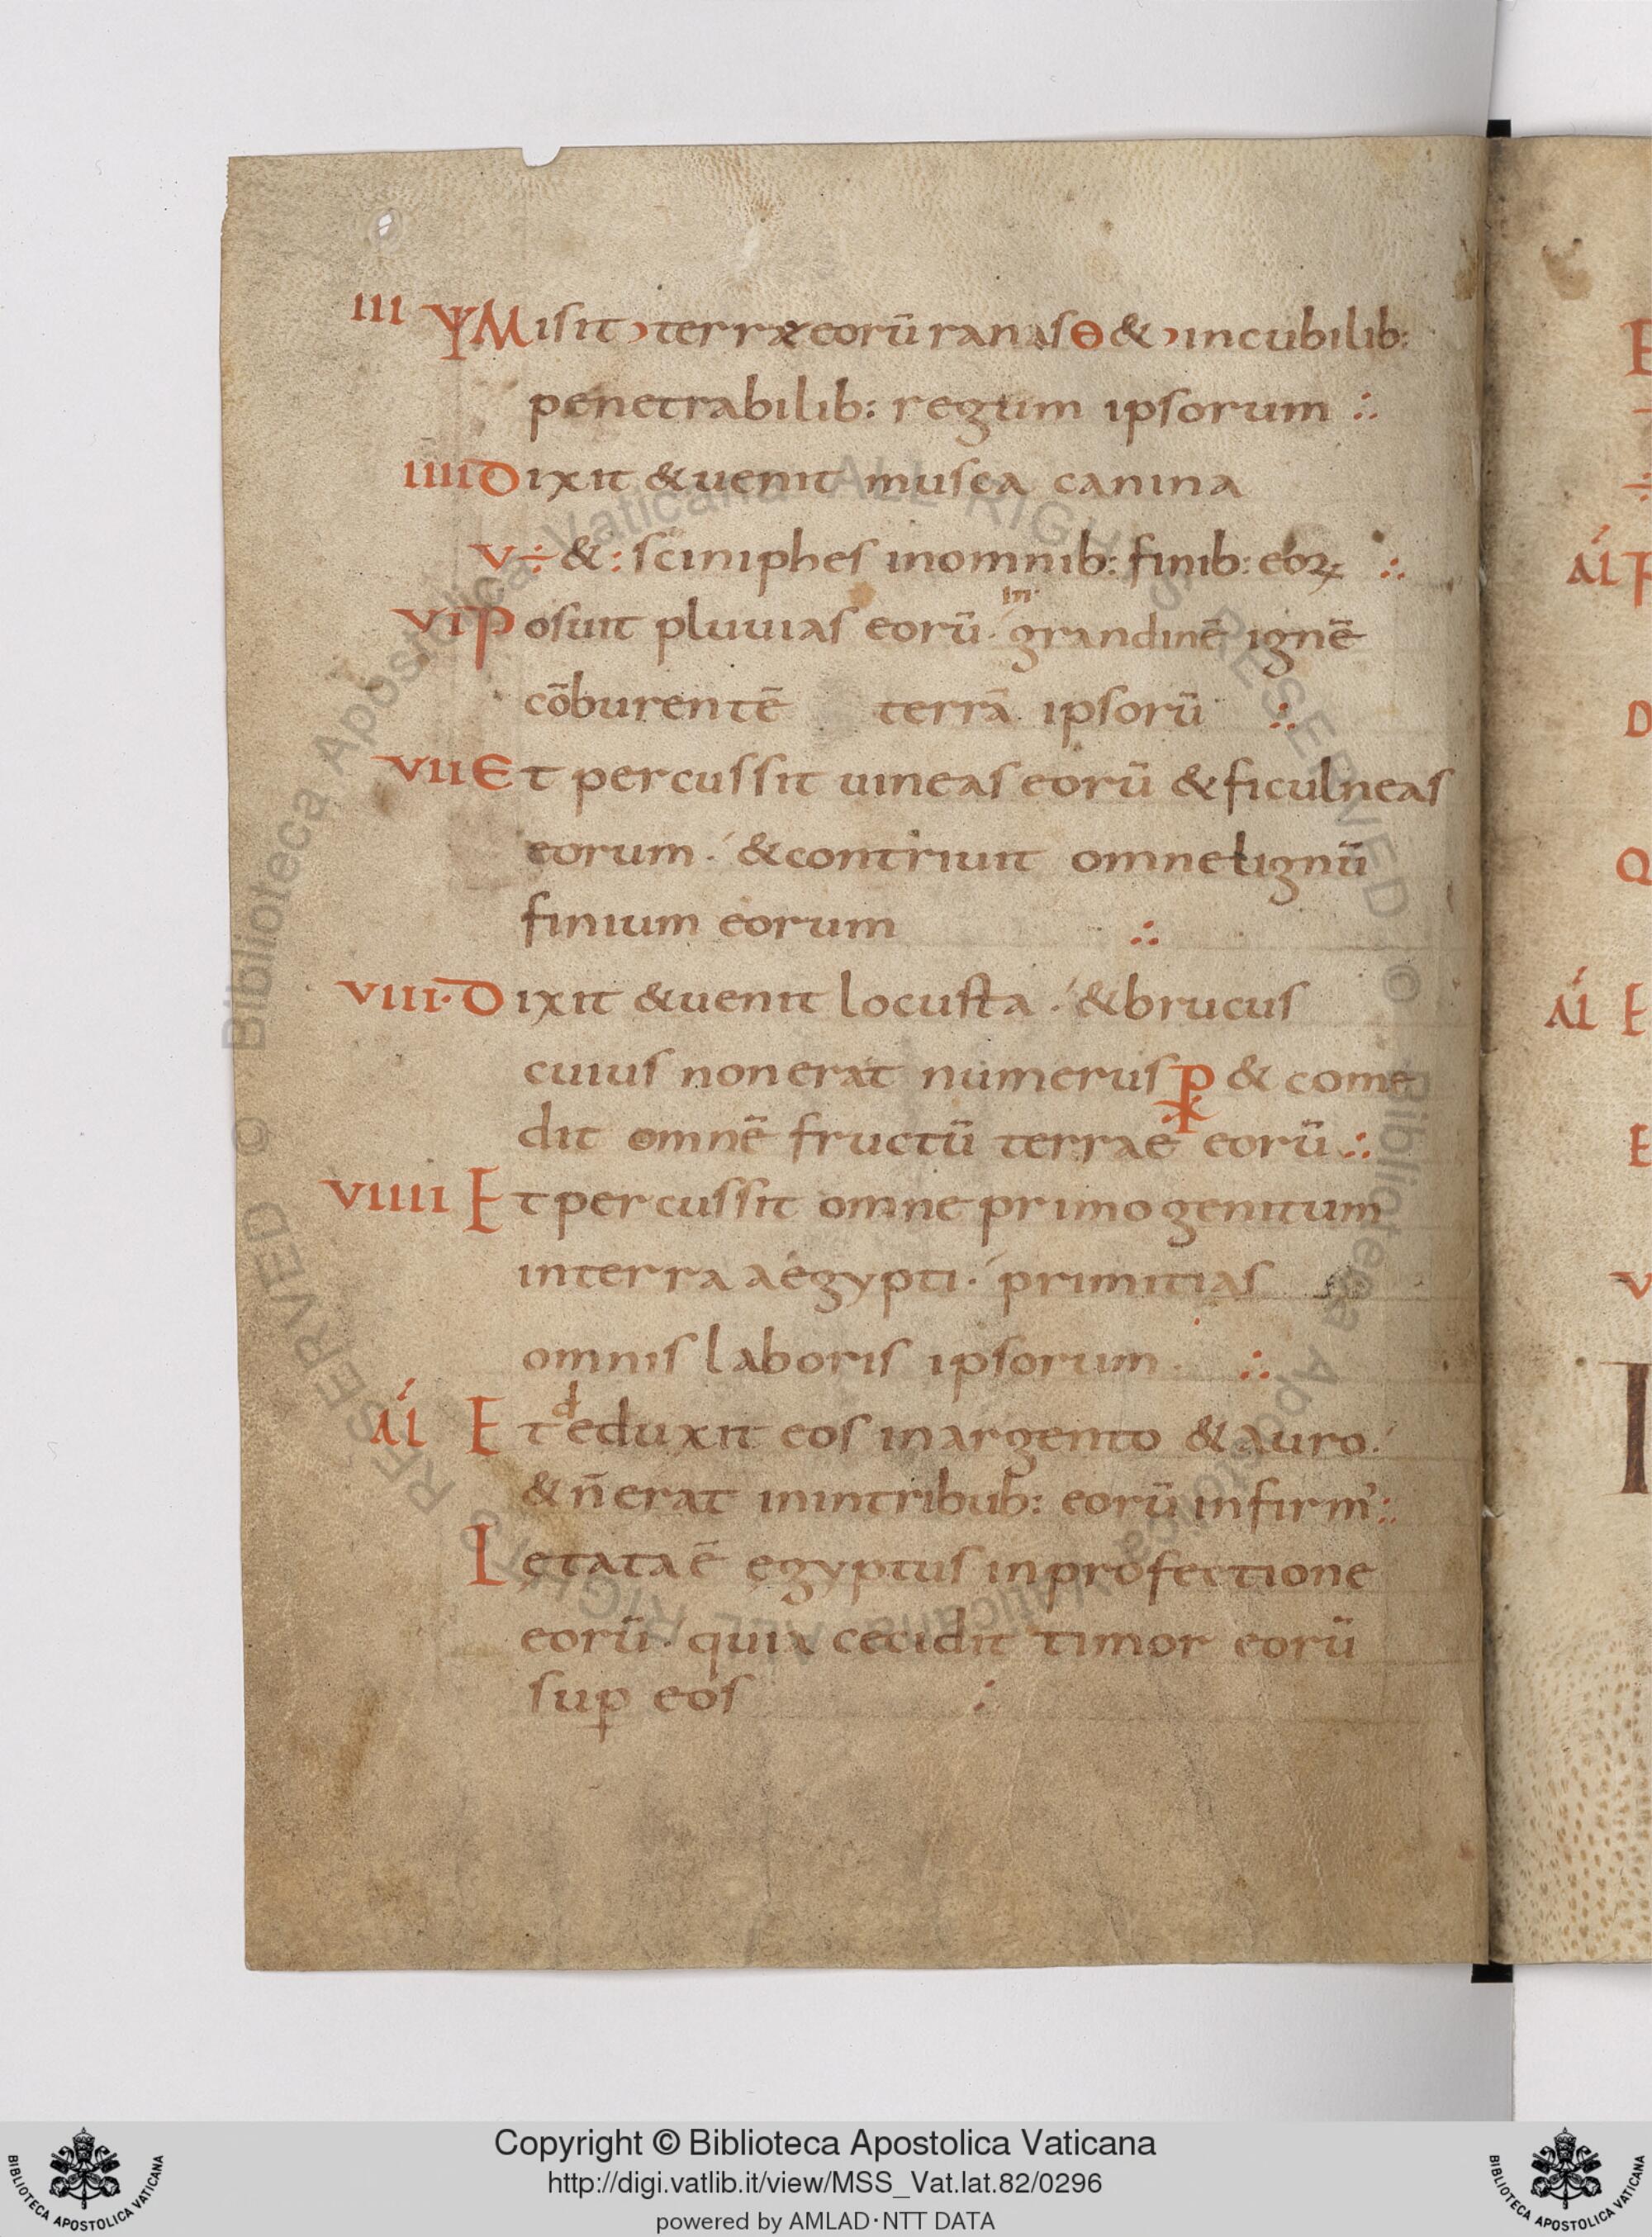 III ΨMisit › terrae eorū ranas Θ & › incubilib:
penetrabilib: regum ipsorum ∴
IIII Dixit & uenit musca canina
V ÷ & : sciniphes inomnib: finib: eoꝝ ∴
VI Posuit pluuias eorū. in grandinē ignē
cōburentē terrā ipsorū ∴
VII Et percussit uineas eorū & ficulneas
eorum. & contriuit omne lignū
finium eorum ∴
VIII. Dixit & uenit locusta. & brucus
cuius non erat numerus ꝑ & come
dit omnē fructū terrae eorū ∴
VIIII Et percussit omne primogenitum
interra aegypti. primitias
omnis laboris ipsorum. ∴
AĹ Et deduxit eos inargento & auro.
& n̄ erat inintribub: eorū infirm' ∴
Lętata ē ęgyptus inprofectione
eorū. quia cecidit timor eorū
suꝑ eos ∴
Copyright © Biblioteca Apostolica Vaticana
http://digi.vatlib.it/view/MSS_Vat.lat.82/0296
powered by AMLAD·NTT DATA
BIBLIOTECA APOSTOLICA VATICANA
BIBLIOTECA APOSTOLICA VATICANA